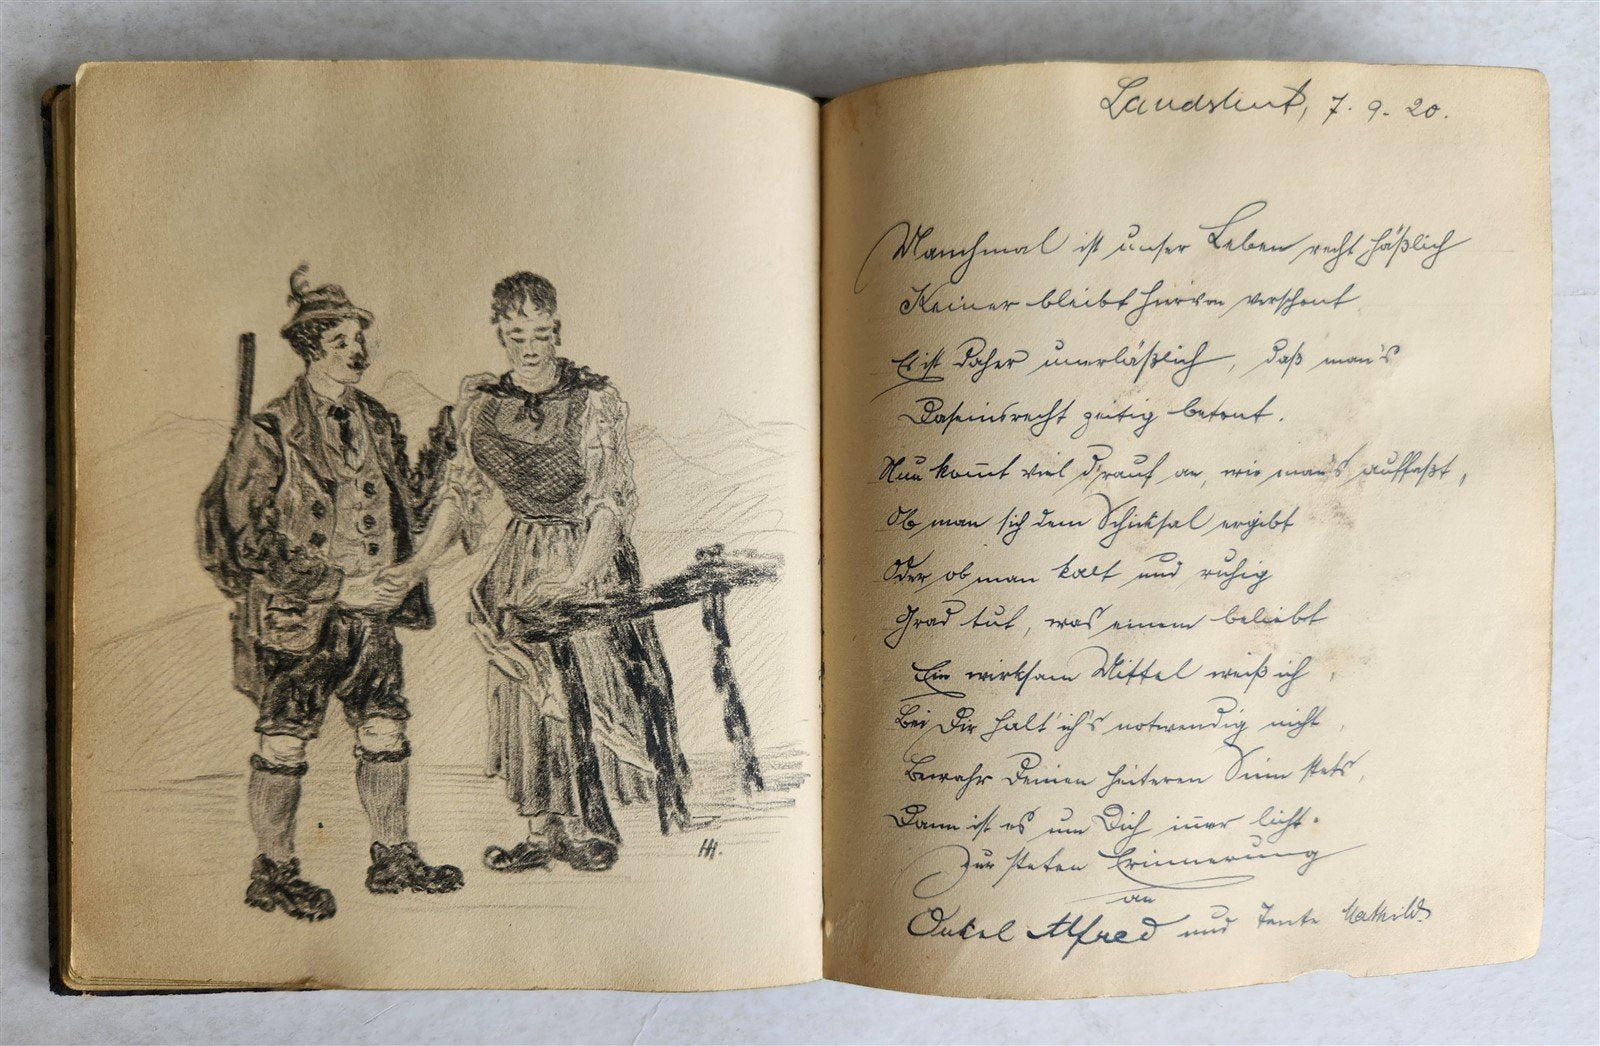 HH.
Landshut, 7.9.20.
Manchmal ist unser Leben recht häßlich
Keiner bleibt hiervon verschont.
Es ist daher unerläßlich, daß man's
Daseinsrecht zeitig betont.
Nun kom̄t viel d'rauf an, wie man's auffaßt,
Ob man sich dem Schicksal ergibt
Oder ob man kalt und ruhig
Grad tut, was einem beliebt
Ein wirksam Mittel weiß ich,
Bei Dir halt' ich's notwendig nicht,
Bewahr Deinen heiteren Sinn stets,
Dann ist es um Dich im̄er licht.
Zur steten Erinnerung
an
Onkel Alfred und Tante Mathild.